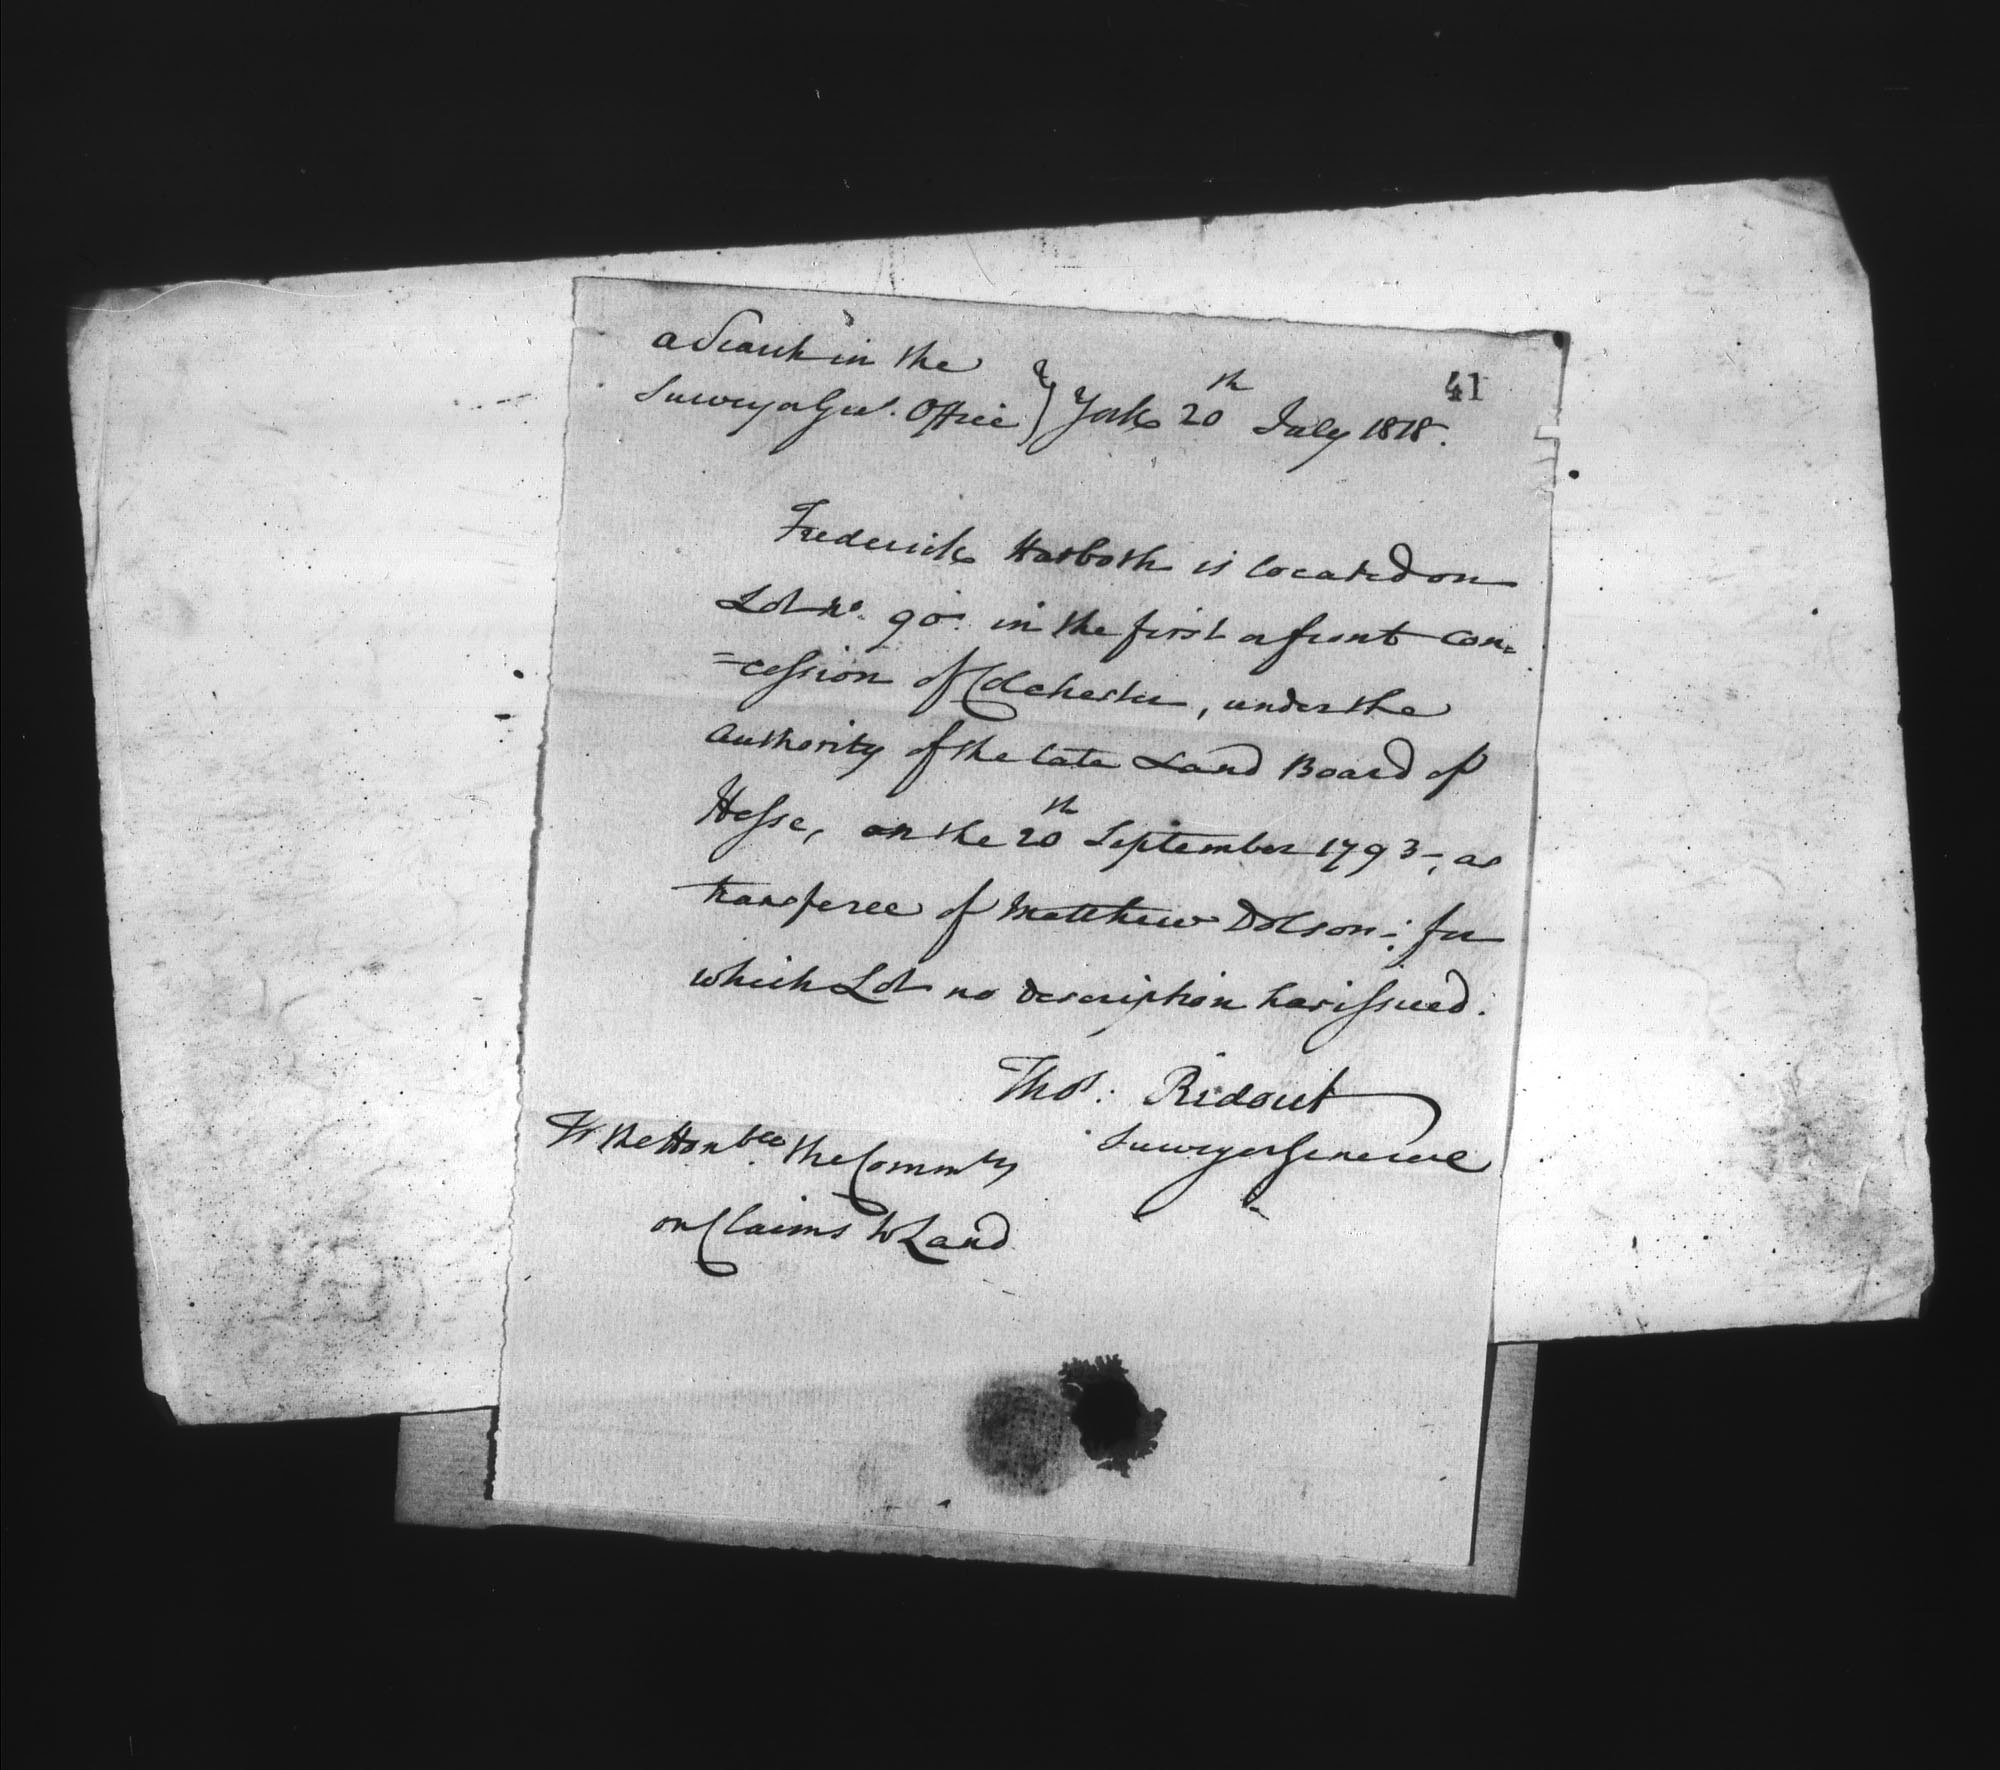 a Search in the
Surveyor Genl. Office } York 20th July 1818.
41
Frederick Harboth is located on
Lot No. 90. in the first or front con=
=cession of Colchester, under the
authority of the late Land Board of
Hesse, on the 20th September 1793-, as
transferee of Matthew Dolson-; for
which Lot no description has issued.
Thos. Ridout
Surveyor General
To the Honble. the Commrs
on Claims to Land